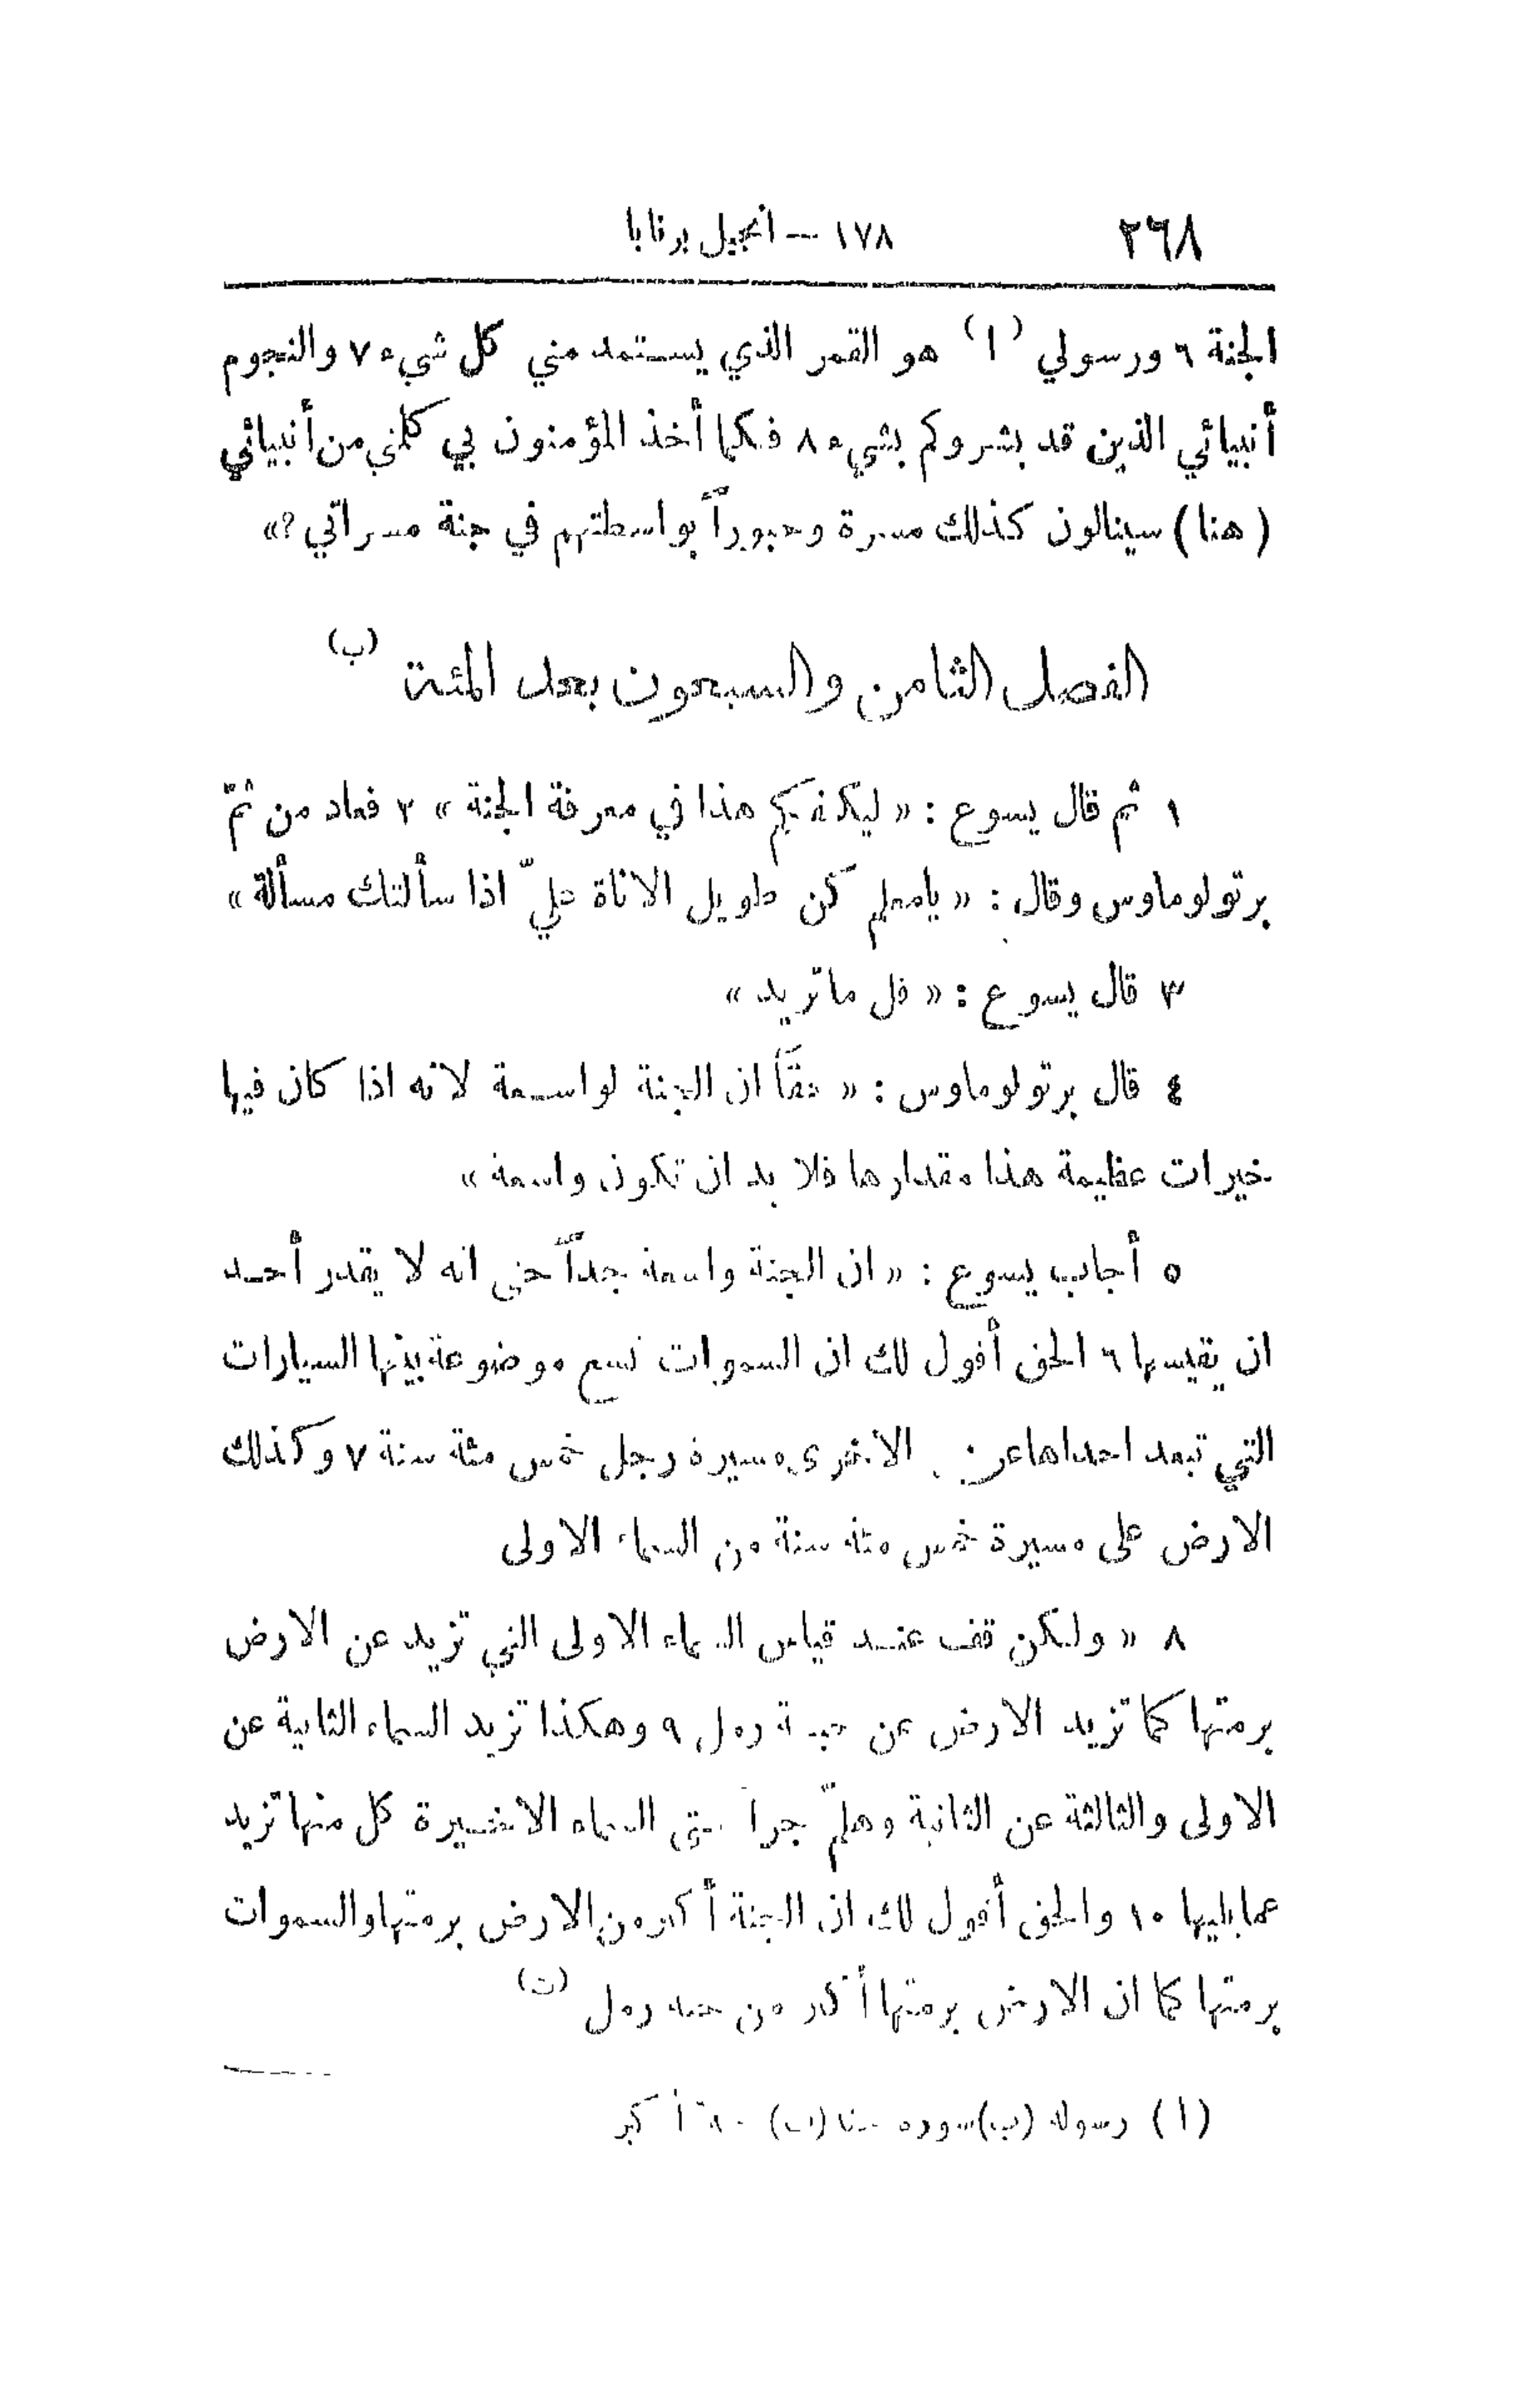 ٢٦٨ ١٧٨ — انجيل برنابا
الجنة ٦ ورسولي (ا) هو القمر الذي يستمد مني كل شيء ٧ والنجوم
أنبيائي الذين قد بشروكم بشيء ٨ فكما أخذ المؤمنون بي كلمتي من أنبيائي
(هنا) سينالون كذلك مسرة وحبوراً بواسطتهم في جنة مسراتي ؟»
الفصل الثامن والسبعون بعد المئة (ب)
١ ثم قال يسوع : « ليكفكم هذا في معرفة الجنة » ٢ فعاد من ثمّ
برتولوماوس وقال : « يامعلم كن طويل الاناة عليّ اذا سألتك مسألة »
٣ قال يسوع : « قل ماتريد »
٤ قال برتولوماوس : « حقاً ان الجنة لواسعة لانه اذا كان فيها
خيرات عظيمة هذا مقدارها فلا بد ان تكون واسعة »
٥ أجاب يسوع : « ان الجنة واسعة جداً حتى انه لا يقدر أحد
ان يقيسها ٦ الحق أقول لك ان السموات تسع موضوعة بينها السيارات
التي تبعد احداها عن الاخرى مسيرة رجل خمس مئة سنة ٧ وكذلك
الارض على مسيرة خمس مئة سنة من السماء الاولى
٨ « ولكن قف عند قياس السماء الاولى التي تزيد عن الارض
برمتها كما تزيد الارض عن حبة رمل ٩ وهكذا تزيد السماء الثانية عن
الاولى والثالثة عن الثانية وهلمّ جرا حتى السماء الاخيرة كل منها تزيد
عما يليها ١٠ والحق أقول لك ان الجنة أكبر من الارض برمتها والسموات
برمتها كما ان الارض برمتها أكبر من حبة رمل (ت)
(ا) رسوله (ب) سورة (ت) أكبر